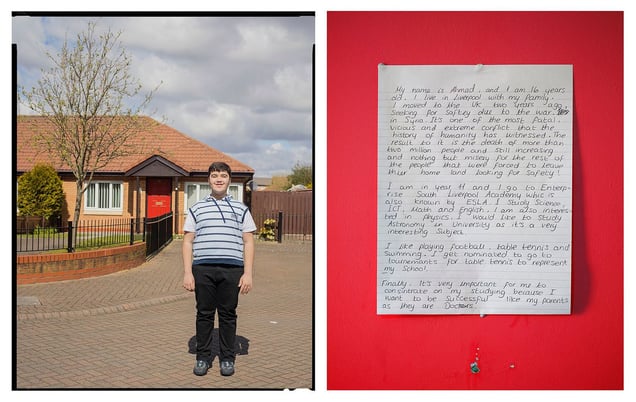 My name is Ahmad, and I am 16 years
old. I live in Liverpool with my family.
I moved to the UK two years ago,
Seeking for Saftey due to the war
in Syria. It's one of the most Fatal,
vicious and extreme conflict that the
history of humanity has witnessed. The
result to it is the death of more than
two million people and still increasing
and nothing but misery for the rest of
the people that were forced to leave
their home land looking for safety!
I am in year 11 and I go to Enterp-
rise South Liverpool Academy which is
also known by ESLA. I Study Science,
ICT, Math and English. I am also interes-
ted in physics. I would like to Study
Astronomy in University as it's a very
interesting Subject.
I like playing football, table tennis and
Swimming. I get nominated to go to
tournements for table tennis to represent
my School.
Finally, It's very important for me to
consintrate on my studying because I
want to be Successful like my parents
as they are Doctors.